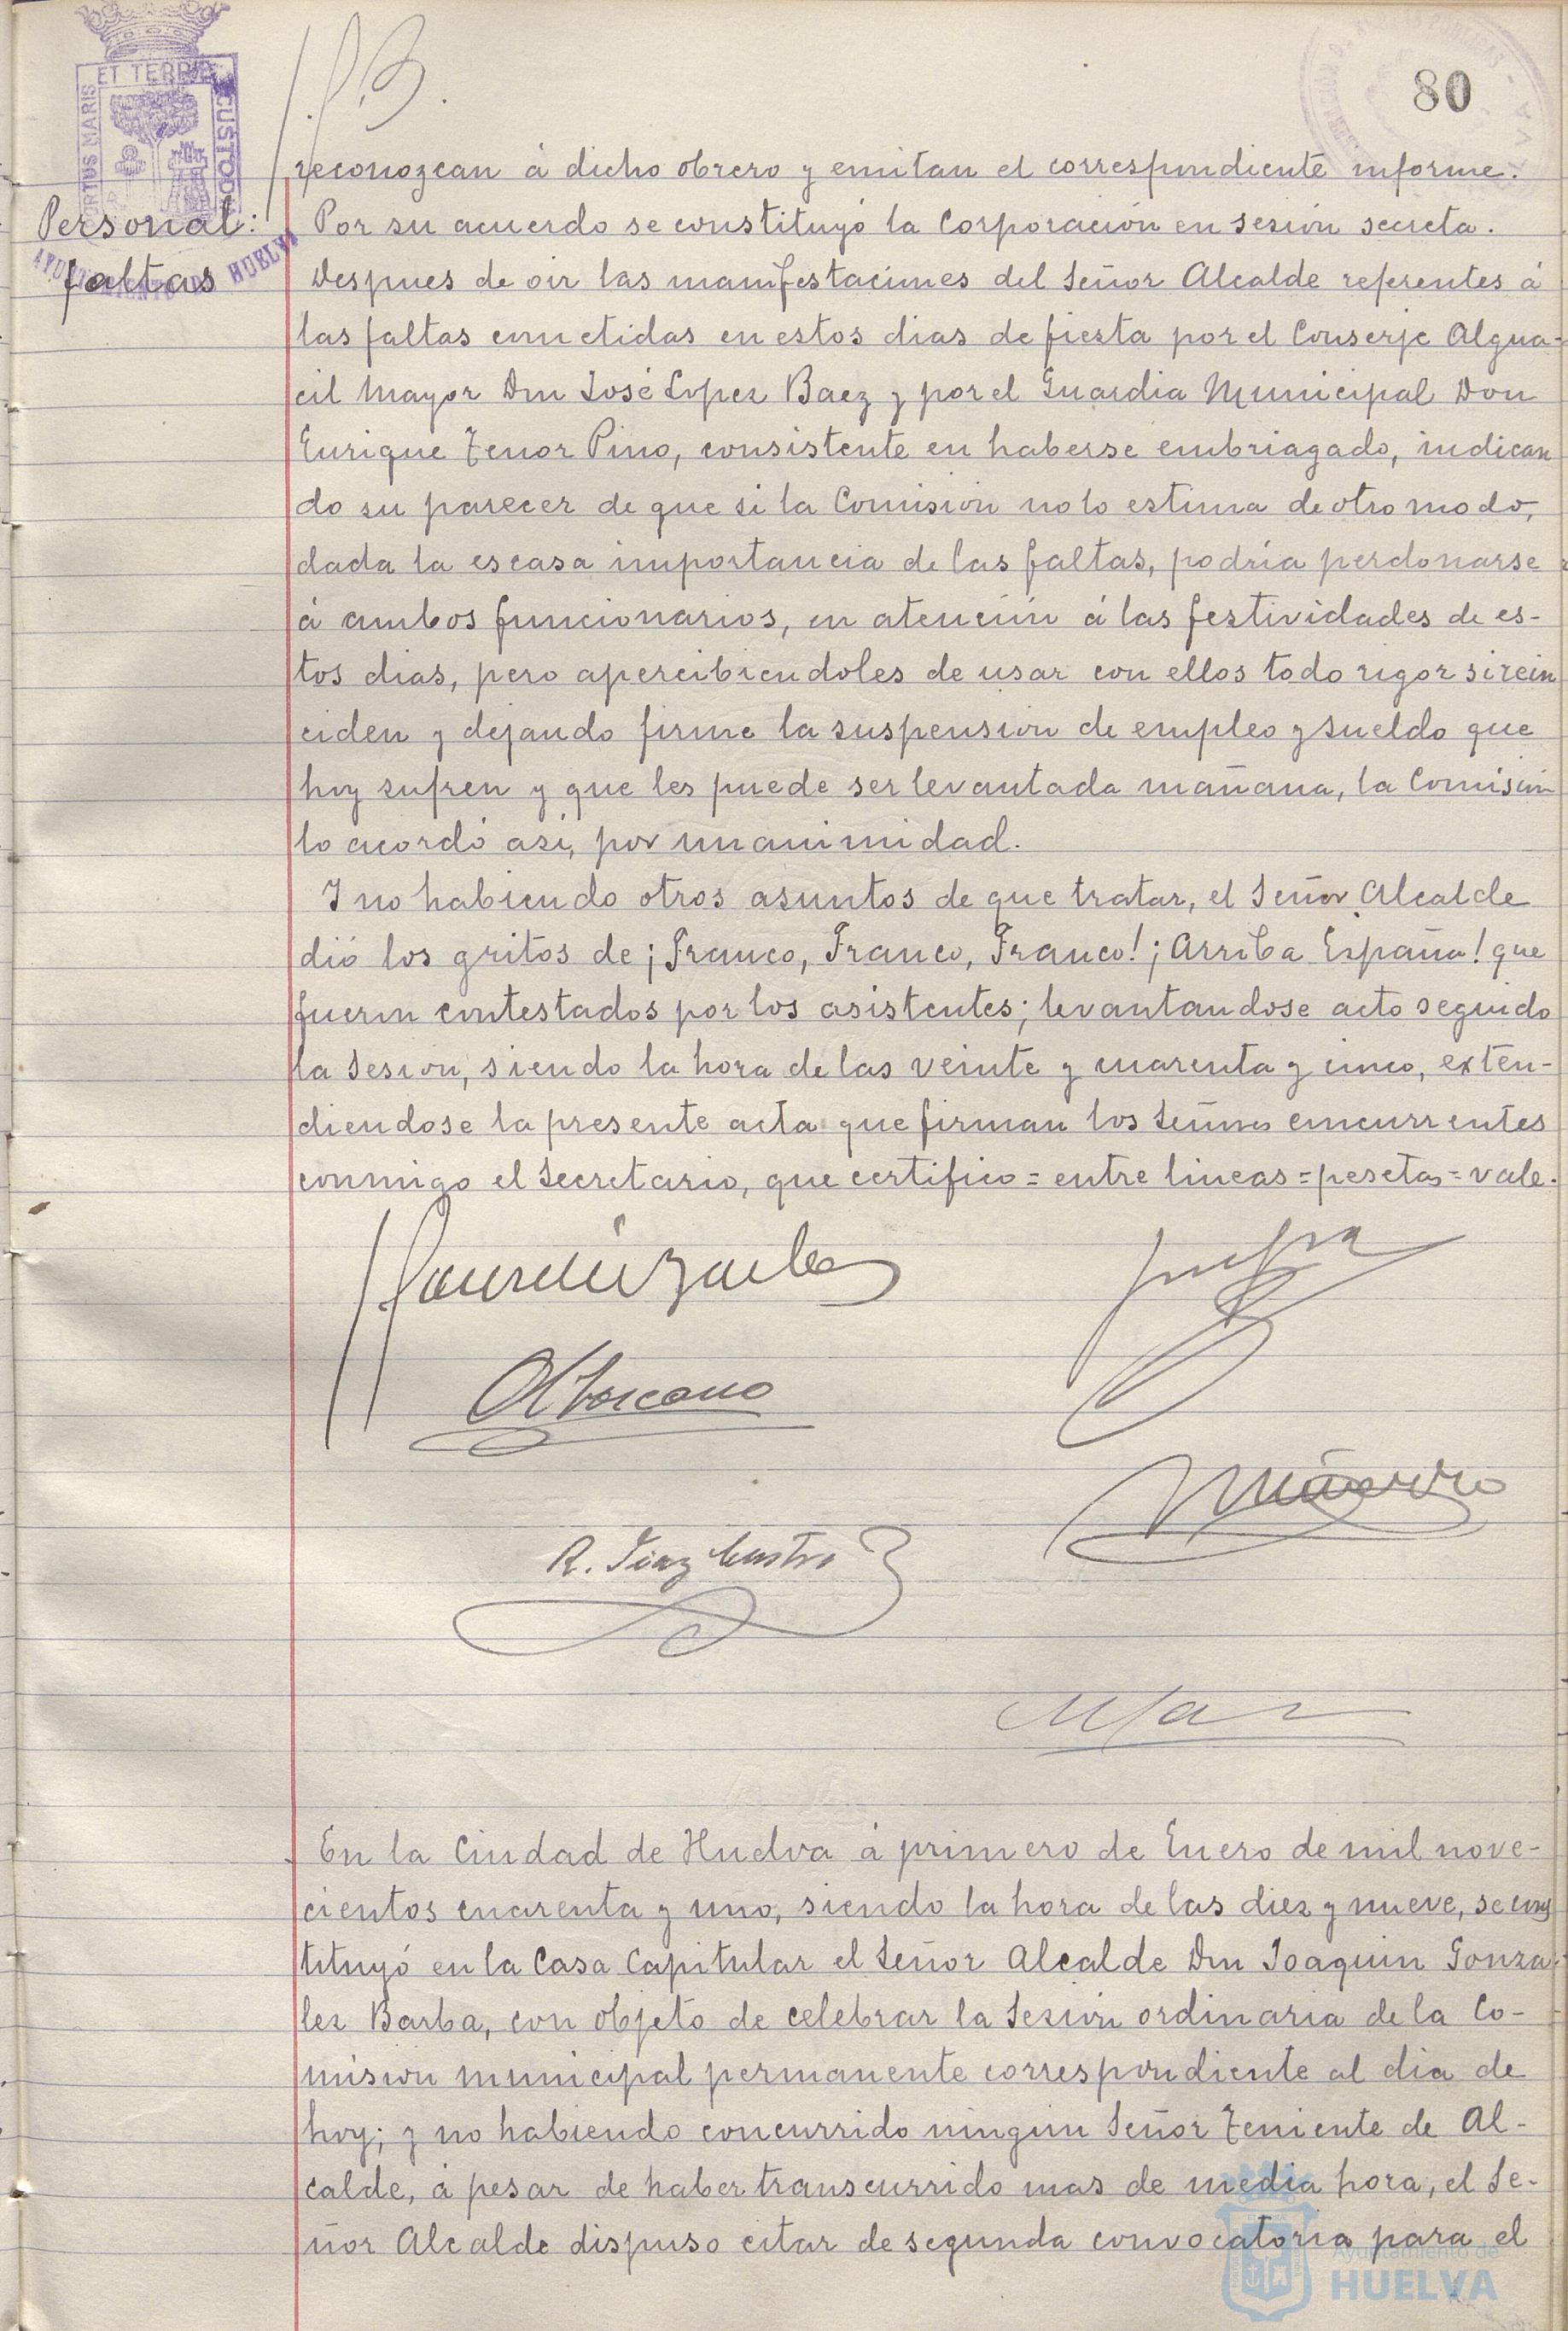 80
PORTUS MARIS ET TERRAE CUSTODIA
AYUNTAMIENTO DE HUELVA
reconozcan á dicho obrero y emitan el correspondiente informe.
Personal:
faltas
Por su acuerdo se constituyó la Corporación en sesión secreta.
Despues de oir las manifestaciones del Señor Alcalde referentes á
las faltas cometidas en estos dias de fiesta por el Conserje Algua-
cil Mayor Don José Lopez Baez y por el Guardia Municipal Don
Enrique Tenor Pino, consistente en haberse embriagado, indican
do su parecer de que si la Comisión no lo estima de otro modo,
dada la escasa importancia de las faltas, podría perdonarse
á ambos funcionarios, en atención á las festividades de es-
tos dias, pero apercibiendoles de usar con ellos todo rigor si rein
ciden y dejando firme la suspensión de empleo y sueldo que
hoy sufren y que les puede ser levantada mañana, la Comisión
lo acordó asi, por unanimidad.
Y no habiendo otros asuntos de que tratar, el Señor Alcalde
dió los gritos de ¡Franco, Franco, Franco! ¡Arriba España! que
fueron contestados por los asistentes; levantandose acto seguido
la sesión, siendo la hora de las veinte y cuarenta y cinco, exten-
diendose la presente acta que firman los Señores concurrentes
conmigo el Secretario, que certifico = entre lineas = pesetas = vale.
R. Diaz Castro
En la Ciudad de Huelva á primero de Enero de mil nove-
cientos cuarenta y uno, siendo la hora de las diez y nueve, se cons
tituyó en la Casa Capitular el Señor Alcalde Don Joaquin Gonza-
lez Barba, con objeto de celebrar la sesión ordinaria de la Co-
misión municipal permanente correspondiente al dia de
hoy; y no habiendo concurrido ningún Señor Teniente de Al-
calde, á pesar de haber transcurrido mas de media hora, el Se-
ñor Alcalde dispuso citar de segunda convocatoria para el
Ayuntamiento de
HUELVA